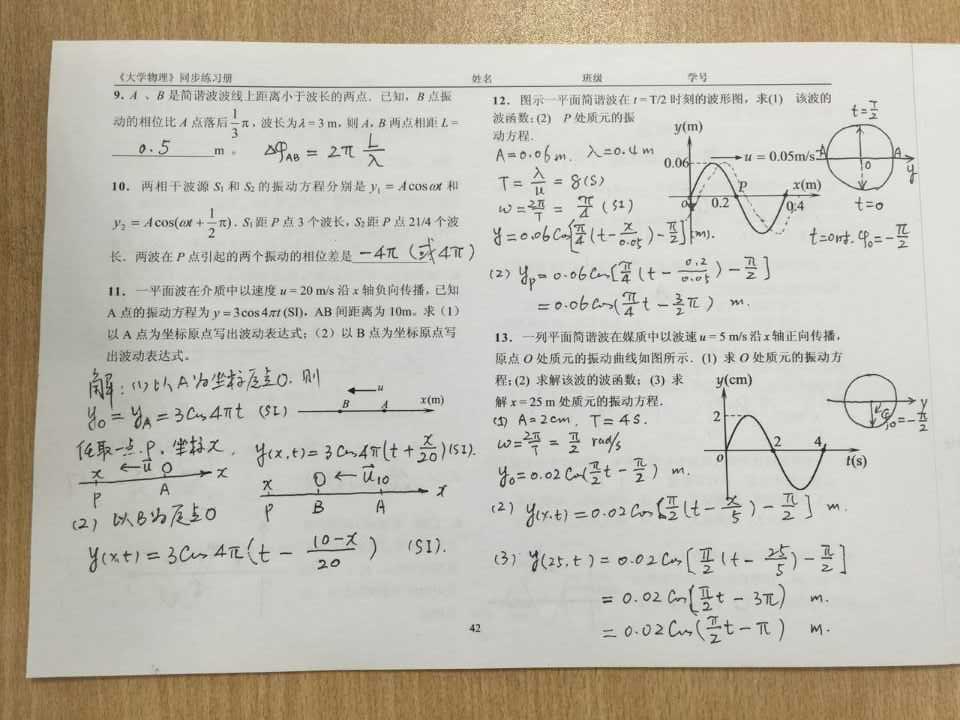 《大学物理》同步练习册 姓名 班级 学号
9. A 、B 是简谐波波线上距离小于波长的两点．已知，B 点振
动的相位比 A 点落后 1/3 π，波长为 λ = 3 m，则 A, B 两点相距 L =
0.5 m 。 Δφ_AB = 2π L/λ
10． 两相干波源 S₁ 和 S₂ 的振动方程分别是 y₁ = A cos ωt 和
y₂ = A cos(ωt + 1/2 π)．S₁ 距 P 点 3 个波长，S₂ 距 P 点 21/4 个波
长．两波在 P 点引起的两个振动的相位差是 -4π (或4π)
11． 一平面波在介质中以速度 u = 20 m/s 沿 x 轴负向传播，已知
A 点的振动方程为 y = 3cos 4πt (SI)，AB 间距离为 10m。求（1）
以 A 点为坐标原点写出波动表达式；（2）以 B 点为坐标原点写
出波动表达式。
解：(1) 以A为坐标原点O. 则
u
B A x(m)
y₀ = y_A = 3cos4πt (SI)
任取一点.P, 坐标x,
y(x,t) = 3cos4π(t + x/20) (SI).
x ←u O x
P A
x O ←u 10 x
P B A
(2) 以B为原点O
y(x,t) = 3cos4π(t − (10−x)/20) (SI).
12． 图示一平面简谐波在 t = T/2 时刻的波形图，求(1) 该波的
波函数；(2) P 处质元的振
动方程．
y(m)
0.06
u = 0.05m/s
P
x(m)
o 0.2 0.4
t=T/2
-A A
o y
t=0
t=0时. φ₀=-π/2
A=0.06m. λ=0.4m
T = λ/u = 8(S)
ω = 2π/T = π/4 (SI)
y = 0.06cos[π/4(t − x/0.05) − π/2] (m).
(2) y_P = 0.06cos[π/4(t − 0.2/0.05) − π/2]
= 0.06cos(π/4 t − 3/2 π) m.
13． 一列平面简谐波在媒质中以波速 u = 5 m/s 沿 x 轴正向传播，
原点 O 处质元的振动曲线如图所示．(1) 求 O 处质元的振动方
程；(2) 求解该波的波函数；(3) 求
解 x = 25 m 处质元的振动方程．
y(cm)
2
o 2 4
t(s)
y
φ₀=-π/2
(1) A=2cm, T=4s.
ω=2π/T = π/2 rad/s
y₀=0.02cos(π/2 t − π/2) m.
(2) y(x,t) = 0.02cos[π/2(t − x/5) − π/2] m.
(3) y(25,t) = 0.02cos[π/2(t − 25/5) − π/2]
= 0.02cos(π/2 t − 3π) m.
= 0.02cos(π/2 t − π) m.
42